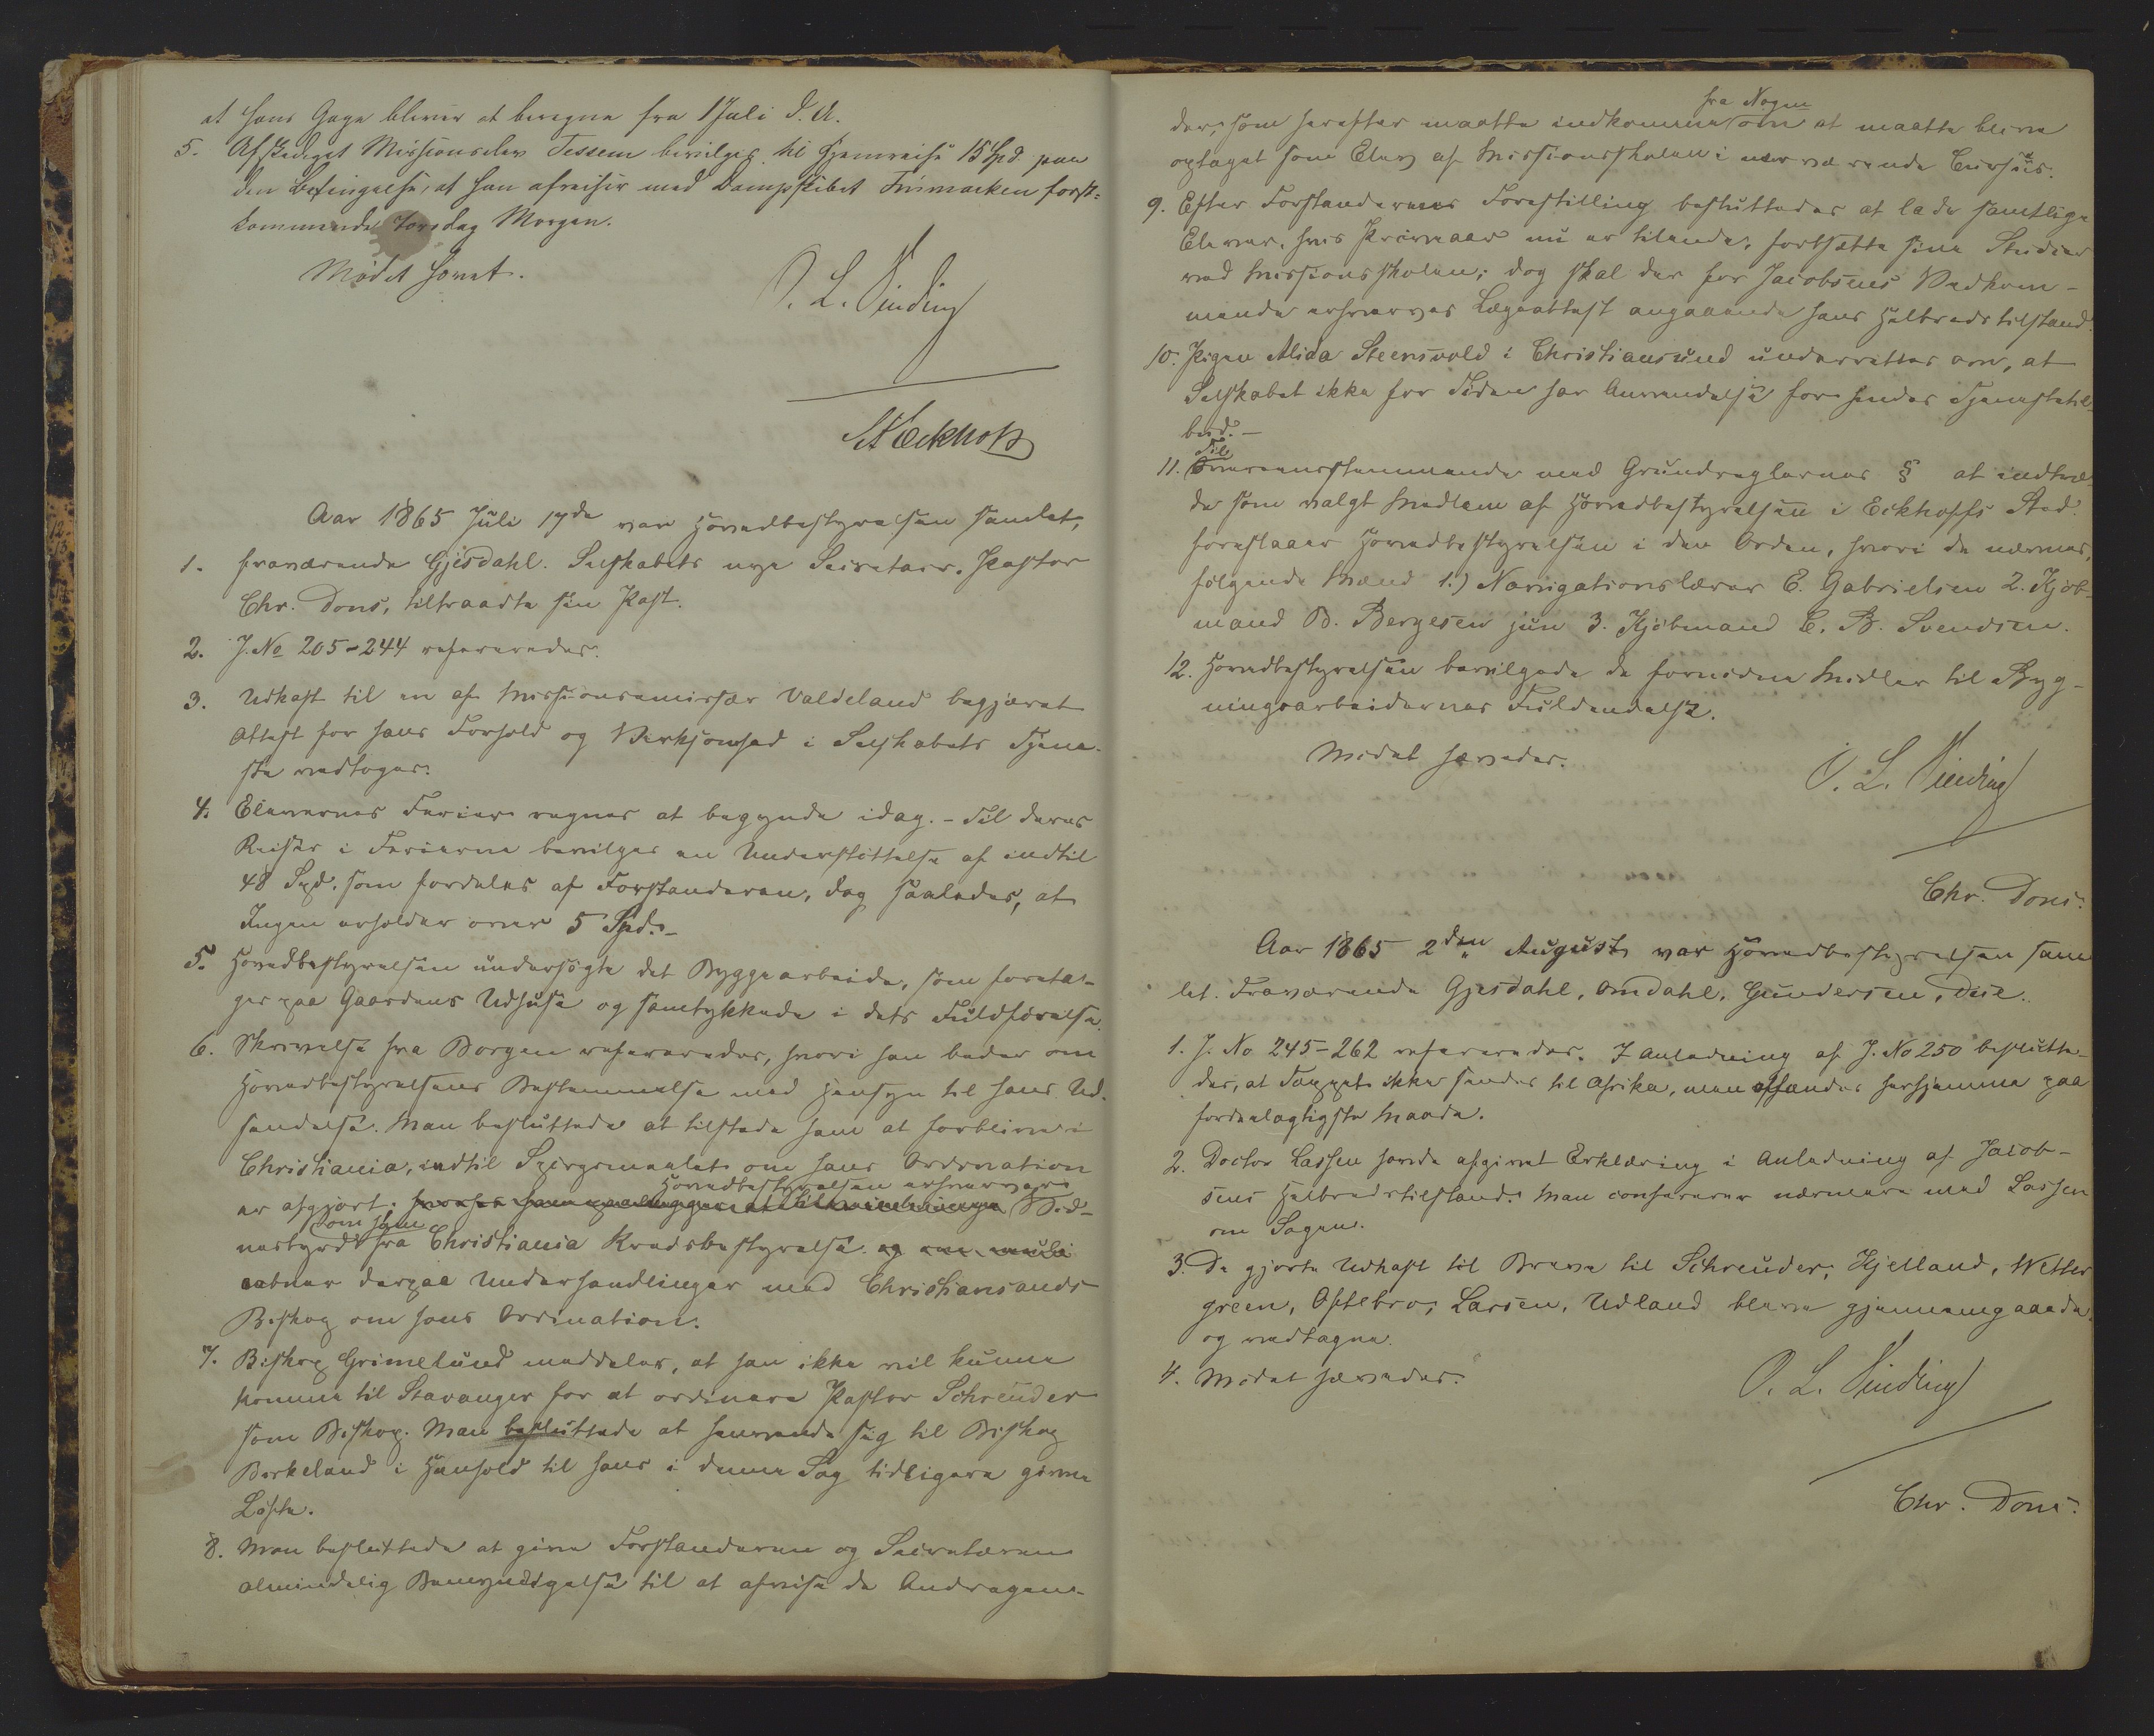 at hans Gage bliver at beregne fra 1 Juli d. A.
5. Afskediget Missionselev Tessem bevilges til Hjemreise 15 Spd. paa
den Betingelse, at han afreiser med Dampskibet Finmarken først-
kommende Torsdag Morgen.
Mødet hævet.
O. L. Sinding
Eckhoff
Aar 1865 Juli 17de var Hovedbestyrelsen samlet,
1. fraværende Gjesdahl. Selskabets nye Secretair, Pastor
Chr. Dons, tiltraadte sin Post.
2. J. No 205-244 refereredes.
3. Udkast til en af Missionsemissær Valdeland begjæret
Attest for hans Forhold og Virksomhed i Selskabets Tjene-
ste vedtoges.
4. Elevernes Ferier regnes at begynde idag. - Til deres
Reiser i Ferierne bevilges en Understøttelse af indtil
48 Spd. som fordeles af Forstanderen, dog saaledes, at
Ingen erholder over 5 Spd. -
5. Hovedbestyrelsen undersøgte det Byggearbeide, som foreta-
ges paa Gaardens Udhuse og samtykkede i dets Fuldførelse.
6. Skrivelse fra Borgen refereredes, hvori han beder om
Hovedbestyrelsens Bestemmelse med Hensyn til hans Ud-
sendelse. Man besluttede at tilstede ham at forblive i
Christiania, indtil Spørgsmaalet om hans Ordination
Hovedbestyrelsen erhverver
er afgjort; Vid-
om ham
nesbyrd fra Christiania Kredsbestyrelse og
aabner derpaa Underhandlinger med Christiansands
Biskop om hans Ordination.
7. Biskop Grimelund meddeler, at han ikke vil kunne
komme til Stavanger for at ordinere Pastor Schreuder
som Biskop. Man besluttede at henvende sig til Biskop
Birkeland i Henhold til hans i denne Sag tidligere givne
Løfte.
8. Man besluttede at give Forstanderen og Secretæren
almindelig Bemyndigelse til at afvise de Andragen-
fra Nogen
der, som herefter maatte indkomme om at maatte blive
optaget som Elev af Missionsskolen i nærværende Cursus.
9. Efter Forstanderens Forestilling besluttedes at lade samtlige
Elever, hvis Prøveaar nu er tilende, fortsætte sine Studier
ved Missionsskolen; dog skal der for Jacobsens Vedkom-
mende erhverves Lægeattest angaaende hans Helbredstilstand.
10. Pigen Alida Steensvold i Christiansund underrettes om, at
Selskabet ikke for Tiden har Anvendelse for hendes Tjenestetil-
bud. -
Til
11. Overensstemmende med Grundreglernes § at indtræ-
de som valgt Medlem af Hovedbestyrelsen i Eckhoffs Sted
foreslaaer Hovedbestyrelsen i den Orden, hvori de nævnes,
følgende Mænd 1.) Navigationslærer E. Gabrielsen 2. Kjøb-
mand B. Bergesen jun 3. Kjøbmand C. B. Svendsen.
12. Hovedbestyrelsen bevilgede de fornødne Midler til Byg-
ningsarbeidernes Fuldendelse.
Mødet hævedes.
O. L. Sinding
Chr. Dons.
Aar 1865 2den August var Hovedbestyrelsen sam-
let. Fraværende Gjesdahl, Omdahl, Gundersen, Due.
1. J. No 245-262 refereredes. I Anledning af J. No 250 beslutte-
des, at Tøppet ikke sendes til Afrika, men afhændes herhjemme paa
fordeelagtigste Maade.
2. Doctor Lassen havde afgivet Erklæring i Anledning af Jacob-
sens Helbredstilstand. Man confererer nærmere med Lassen
om Sagen.
3. De gjorte Udkast til Breve til Schreuder, Kjelland, Wetter-
green, Oftebro, Larsen, Udland bleve gjennemgaaede
og vedtagne.
4. Mødet hævedes.
O. L. Sinding
Chr. Dons.